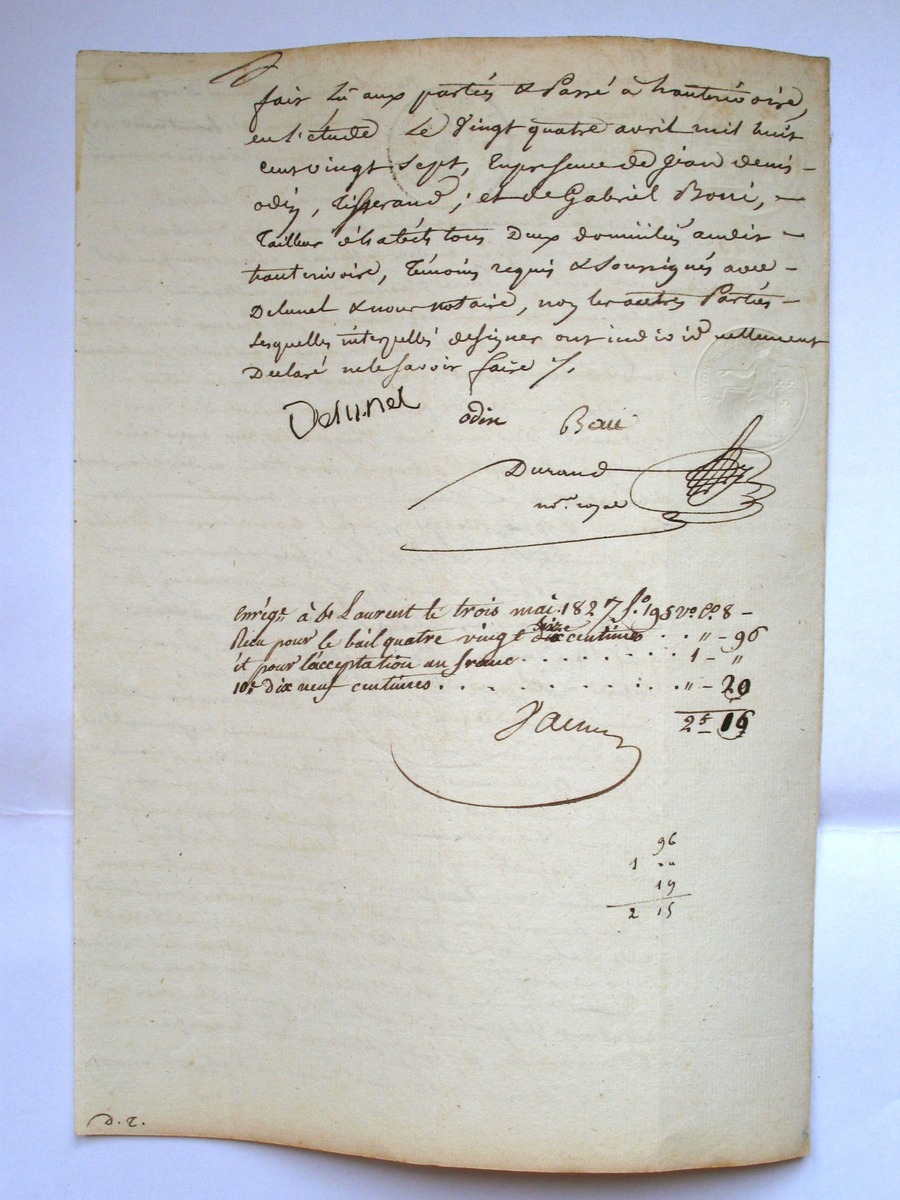 fait lû aux parties & Passé à hauterivoire,
en l'étude Le Vingt quatre avril mil huit
cent vingt Sept, En presence de jean denis
odin, Tisserand; et de Gabriel Boni,
Tailleur d'habits tous Deux domiciliés audit
hauterivoire, Témoins requis & Soussignés avec
Delunel & nous notaire, non les autres Parties
Lesquelles interpellés de signer ont individuellement
Declaré ne le Savoir faire /.
Delunel odin Boni
Durand
nre. royal
Enrégé. à St Laurent le trois mai 1827 fo. 195 vo. Co. 8 -
Reçu pour le bail quatre vingt seize centimes . . " - 96
et pour l'acceptation un franc . . . . . . . . 1 - "
10e Dix neuf centimes . . . . . . . . . " - 20
2f 16
96
1 "
19
2 15
D. T.